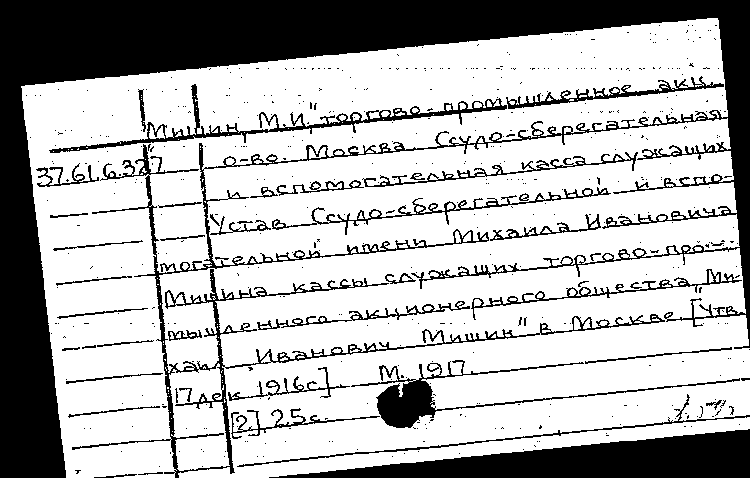 "Мишин, М.И.", торгово-промышленное акц.
37.61.6.327 о-во. Москва. Ссудо-сберегательная
и вспомогательная касса служащих
Устав Ссудо-сберегательной и вспо-
могательной имени Михаила Ивановича
Мишина кассы служащих торгово-про-
мышленного акционерного общества "Ми-
хаил Иванович Мишин" в Москве. [Утв.
17 дек. 1916г.]. М. 1917.
[2], 25 с.